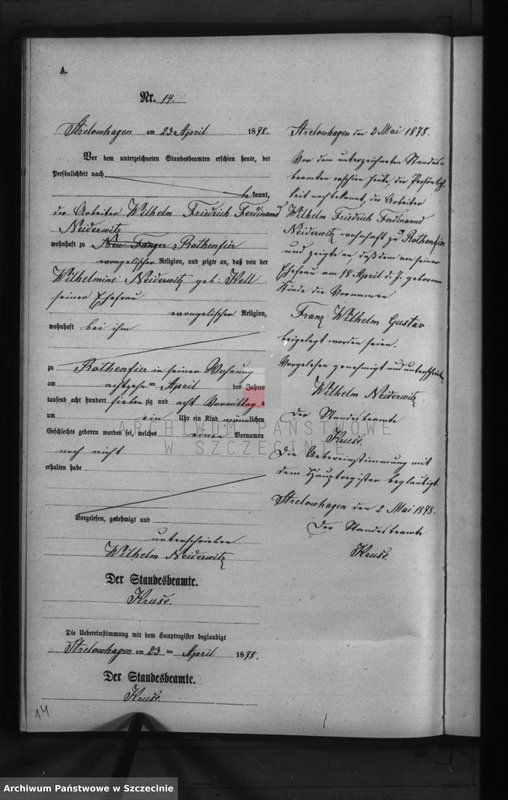 A.
Nr. 14.
Stelowhagen am 23 April 1878.
Vor dem unterzeichneten Standesbeamten erschien heute, der
Persönlichkeit nach
bekannt,
der Arbeiter Wilhelm Friedrich Ferdinand
Neiderwitz
wohnhaft zu Rothenfier
evangelischer Religion, und zeigte an, daß von der
Wilhelmine Neiderwitz geb: Kell
seiner Ehefrau
evangelischer Religion,
wohnhaft bei ihm
zu Rothenfier in seiner Wohnung
am achtzehn ten April des Jahres
tausend acht hundert siebenzig und acht Vormittags
um ein Uhr ein Kind männlichen
Geschlechts geboren worden sei, welches einen Vornamen
noch nicht
erhalten habe
Vorgelesen, genehmigt und
unterschrieben
Wilhelm Neiderwitz
Der Standesbeamte.
Kruse.
Die Uebereinstimmung mit dem Hauptregister beglaubigt
Stelowhagen am 23 ten April 1878.
Der Standesbeamte.
Kruse.
14
Stelowhagen den 2 Mai 1878.
Vor dem unterzeichneten Standes
beamten erschien heute, der Persönlich
keit nach bekannt, der Arbeiter
Wilhelm Friedrich Ferdinand
Neiderwitz wohnhaft zu Rothenfier
und zeigte an, daß dem von seiner
Ehefrau am 18 April d. J. geborenen
Kinde die Vornamen
Franz Wilhelm Gustav
beigelegt worden seien.
Vorgelesen genehmigt und unterschrieben
Wilhelm Neiderwitz
Der Standesbeamte
Kruse.
Die Uebereinstimmung mit
dem Hauptregister beglaubigt
Stelowhagen den 2 Mai 1878.
Der Standesbeamte
Kruse.
ARCHIWUM PAŃSTWOWE
W SZCZECINIE
Archiwum Państwowe w Szczecinie